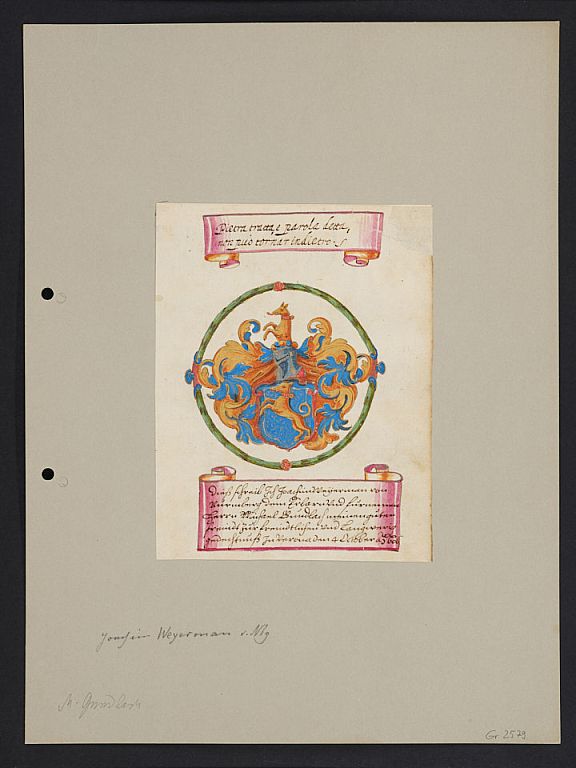 Pietra tratta, e parola detta,
non può tornar indietro.
Diess schreib Ich Joachim Weyerman von
Nürmberg dem Erbarn Und fürnemen
Herrn Michael Gundlach meinem guten
freundt zur freundtlichen Und Langwerigen
gedechtnuss In Verona den 4 October
Joachim Weyerman v. Nbg
M. Gundlach
Gr. 2579